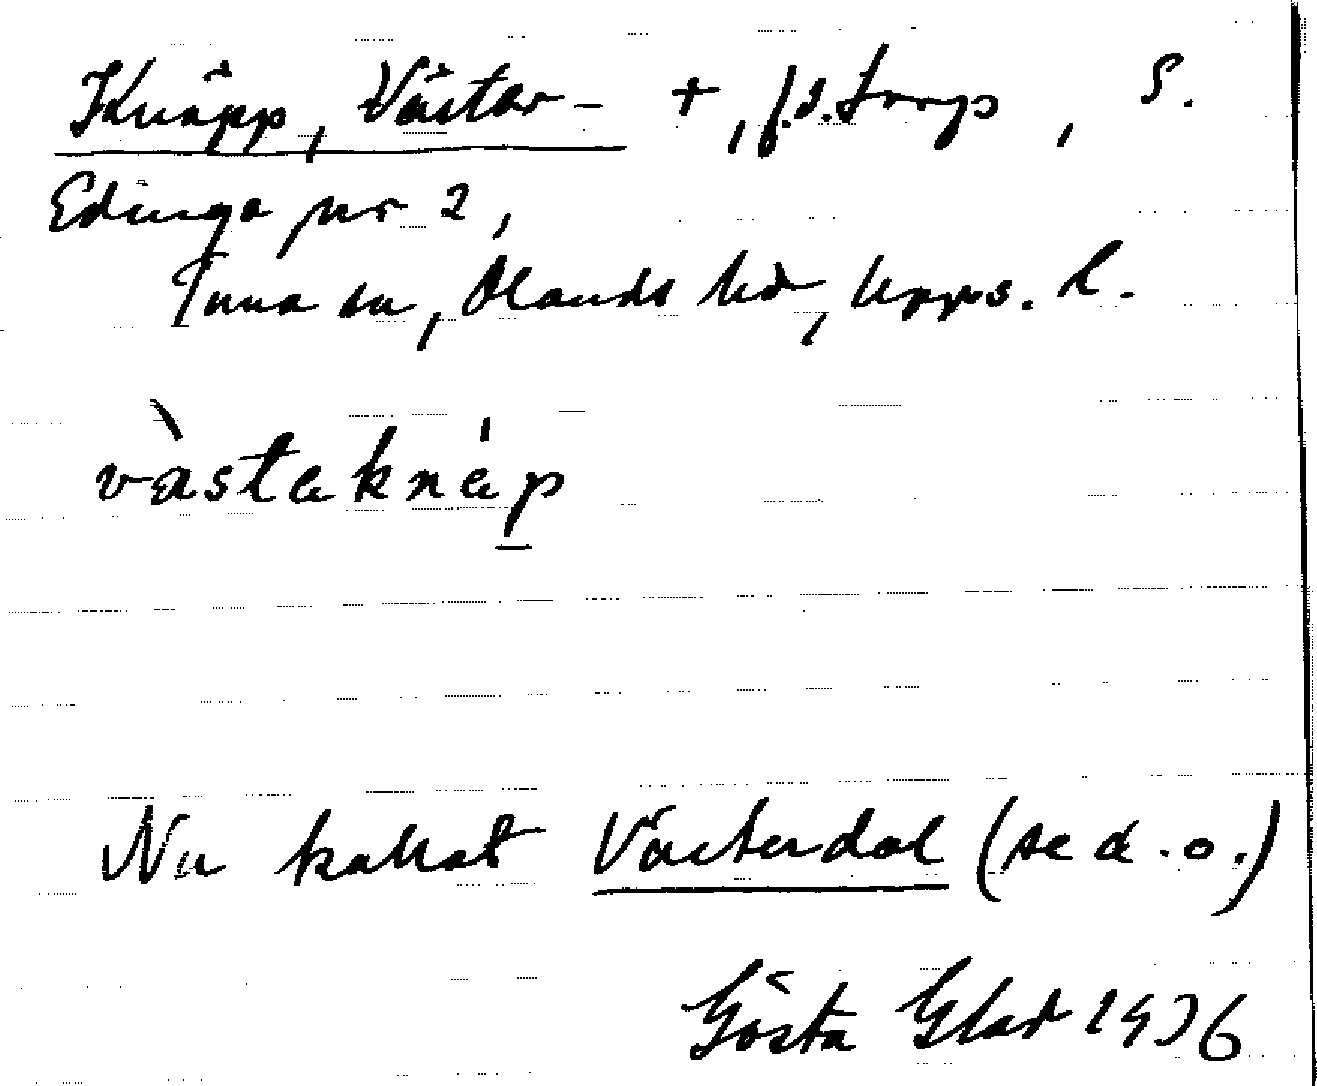 Knäpp, Väster- +, f.d. torp, S.
Edinge nr 2,
Tuna sn, Olands hd, Upps. l.
vàstɑknáp
Nu kallat Västerdal (se d. o.)
Gösta Glad 1936